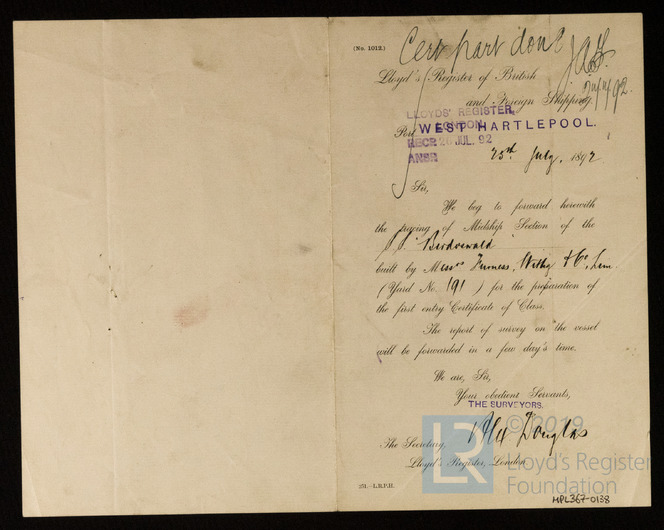 (No. 1012.)
Cert part done
Lloyd's Register of British
and Foreign Shipping.
LLOYDS' REGISTER,
LONDON.
Port WEST HARTLEPOOL.
RECD 26 JUL. 92
ANSD
25th July, 1892
Sir,
We beg to forward herewith
the tracing of Midship Section of the
S.S. "Birdoswald"
built by Messrs Furness, Withy & Co, Lim
(Yard No. 191) for the preparation of
the first entry Certificate of Class.
The report of survey on the vessel
will be forwarded in a few day's time.
We are, Sir,
Your obedient Servants,
THE SURVEYORS.
Douglas
The Secretary,
Lloyd's Register, London.
251.—L.R.P.H.
LR
© 2019
Lloyd's Register
Foundation
HPL367-0138